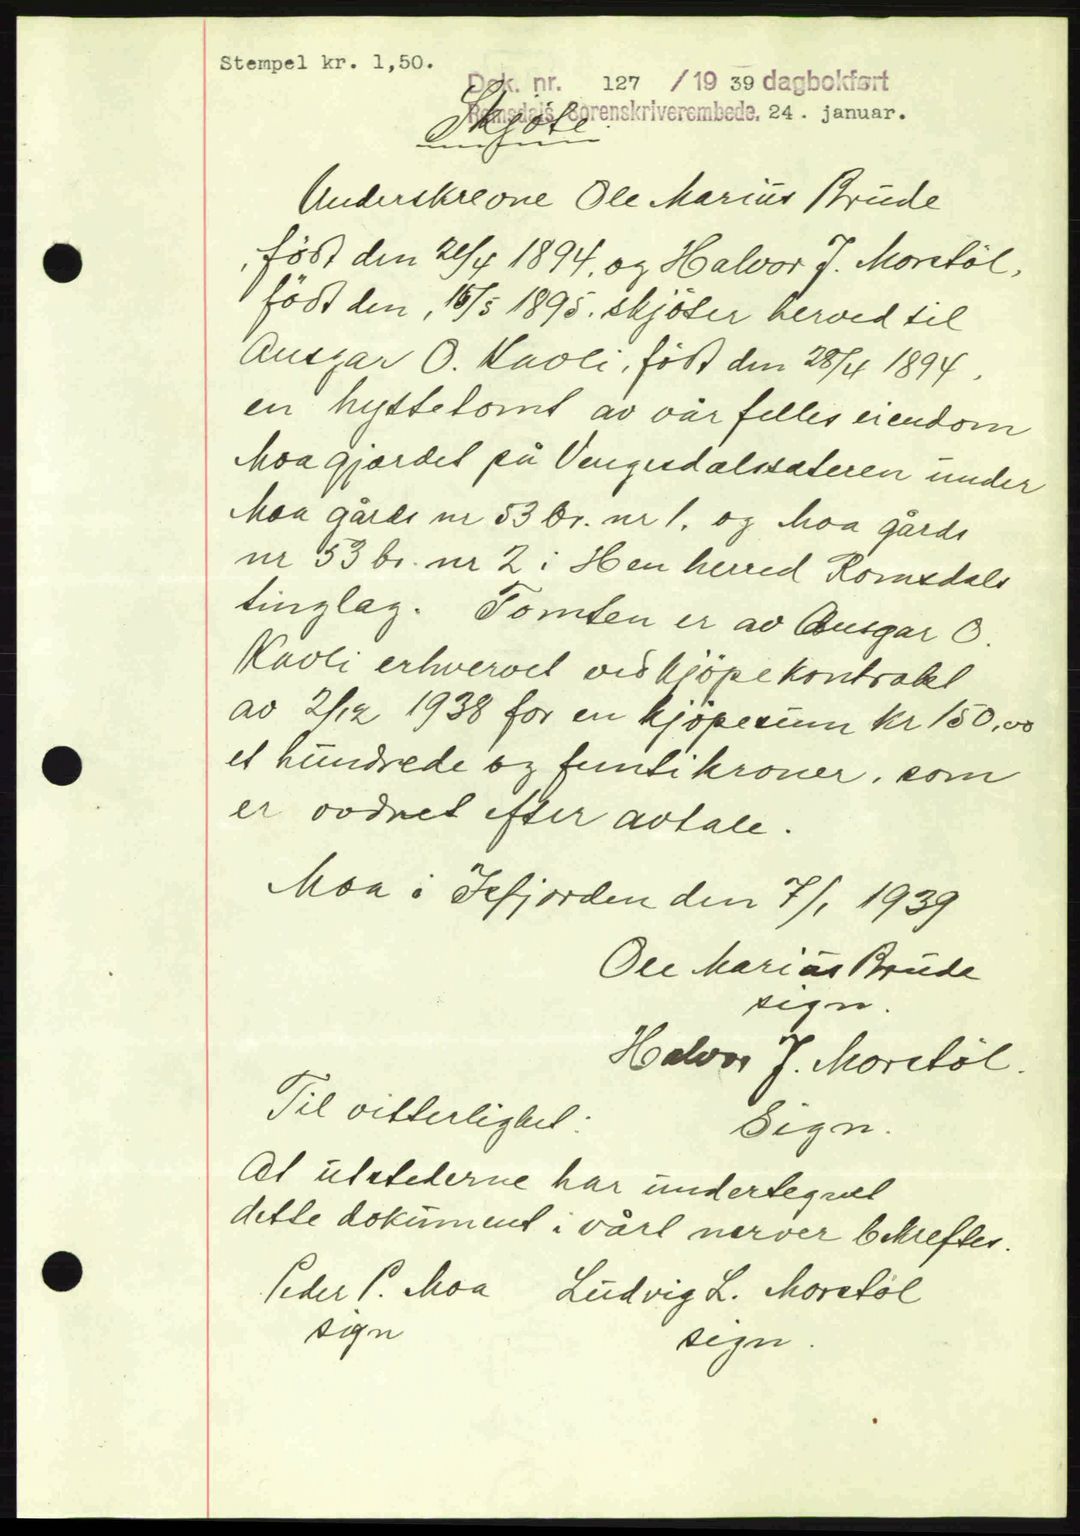 Stempel kr. 1,50.
Dok. nr. 127 / 19 39 dagbokført
Romsdals Sorenskriverembede. 24. januar.
Skjöte.
Underskrevne Ole Marius Brude
, född den 24 1894. og Halvor J. Morstöl,
född den, 15/5 1895. skjöter herved til
Ansgar O. Kavli, född den 28/4 1894.
en hyttetomt av vår felles eiendom
Moagjærdet på Vengedalssæteren under
Moa gårds nr 53 br. nr 1. og Moa gårds
nr 53 br. nr 2 i Hen herred Romsdals
tinglag. Tomten er av Ansgar O.
Kavli erhvervet ved kjöpekontrakt
av 2/12 1938 for en kjöpesum kr 150,00
et hundrede og femti kroner, som
er ordnet efter avtale.
Moa i Isfjorden den 7/1 1939
Ole Marius Brude
sign.
Halvor J. Morstöl.
Til vitterlighet: Sign.
At utstederne har undertegnet
dette dokument i vårt nærver bekreftes.
Peder P. Moa Ludvig L. Morstöl
sign sign.